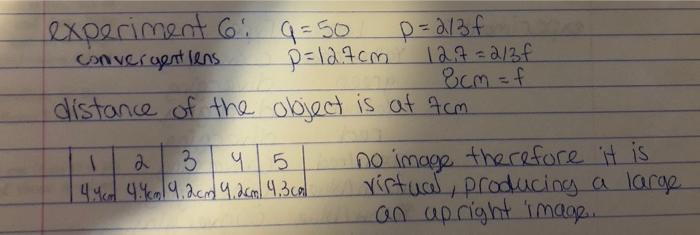 experiment 6: q=50 p=2/3f
convergent lens p=12.7cm 12.7=2/3f
8cm=f
distance of the object is at 7cm
1 2 3 4 5 no image therefore it is
4.4cm 4.4cm 4.2cm 4.2cm 4.3cm virtual, producing a large
an upright image.